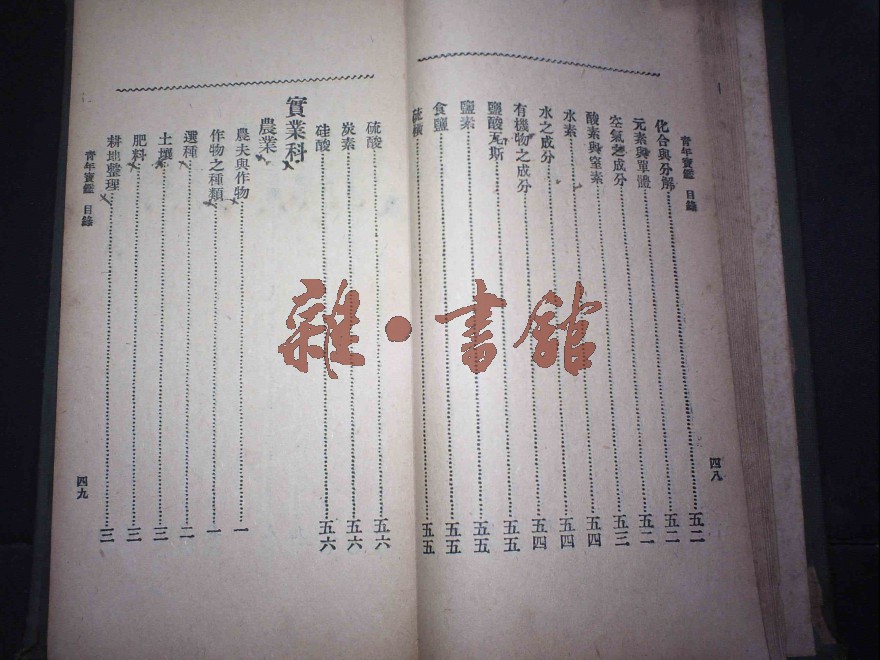 青年寶鑑 目錄
四八
化合與分解 五二
元素與單體 五二
空氣之成分 五三
酸素與窒素 五四
水素 五四
水之成分 五四
有機物之成分 五五
鹽酸瓦斯 五五
鹽素 五五
食鹽 五五
硫磺 五五
硫酸 五六
炭素 五六
硅酸 五六
實業科
農業
農夫與作物 一
作物之種類 一
選種 二
土壤 三
肥料 三
耕地整理 三
青年寶鑑 目錄
四九
雜·書館